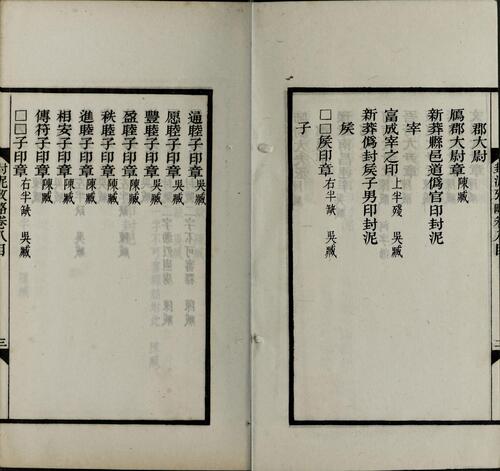 郡大尉
鴈郡大尉章 陳臧
新莽縣邑道僞官印封泥
宰
富成宰之印 上半殘 吳臧
新莽僞封矦子男印封泥
矦
□□矦印章 右半缺 吳臧
子
通睦子印章 吳臧
愿睦子印章 陳臧
豐睦子印章 吳臧
盈睦子印章 陳臧
秩睦子印章 陳臧
進睦子印章 陳臧
相安子印章 陳臧
傳符子印章 陳臧
□□子印章 右半缺 吳臧
封泥攷略卷八目
三